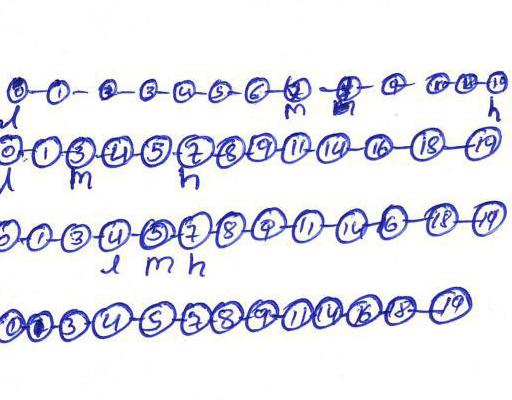 0 1 2 3 4 5 6 9 10
l m h
0 1 3 4 5 7 8 9 11 14 16 18 19
l m h
0 1 3 4 5 7 8 9 11 14 16 18 19
l m h
0 1 3 4 5 7 8 9 11 14 16 18 19